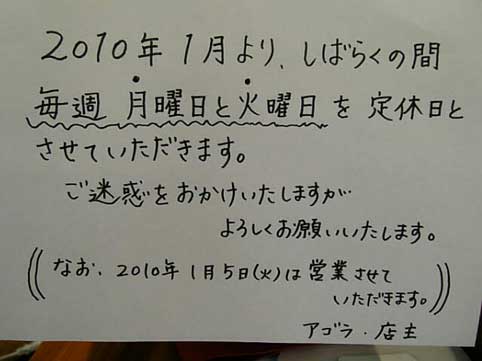 2010年1月より、しばらくの間
毎週 月曜日と火曜日を定休日と
させていただきます。
ご迷惑をおかけいたしますが
よろしくお願いいたします。
((なお、2010年1月5日(火)は営業させて
いただきます。))
アゴラ・店主